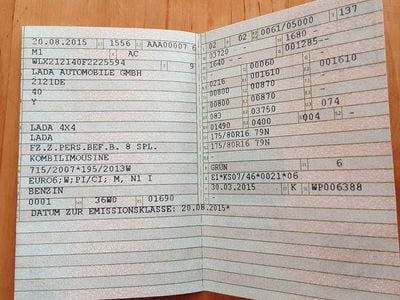 20.08.2015 1556 AAA00007 6
M1 AC
WLX212140F2225594 9
LADA AUTOMOBILE GMBH
2121DE
40
Y
LADA 4X4
LADA
FZ.Z.PERS.BEF.B. 8 SPL.
KOMBILIMOUSINE
715/2007*195/2013W
EURO6;W;PI/CI; M, N1 I
BENZIN
0001 36W0 01690
DATUM ZUR EMISSIONSKLASSE: 20.08.2015*
02 02 0061/05000 137
03720 1680 -
1640 - - 001285--
00060
0216 01610 001610
00800 00870
00800 00870
083 03750 074
01490 0400 004 -
175/80R16 79N
175/80R16 79N
-
GRÜN 6
E1*KS07/46*0021*06
30.03.2015 K WP006388